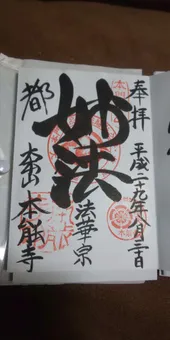 奉拝
平成二十九年八月二十日
妙法
法華宗
都
大本山
本能寺